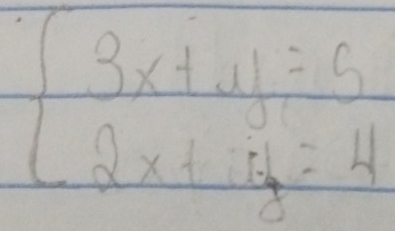 3x + y = 5
2x + y = 4